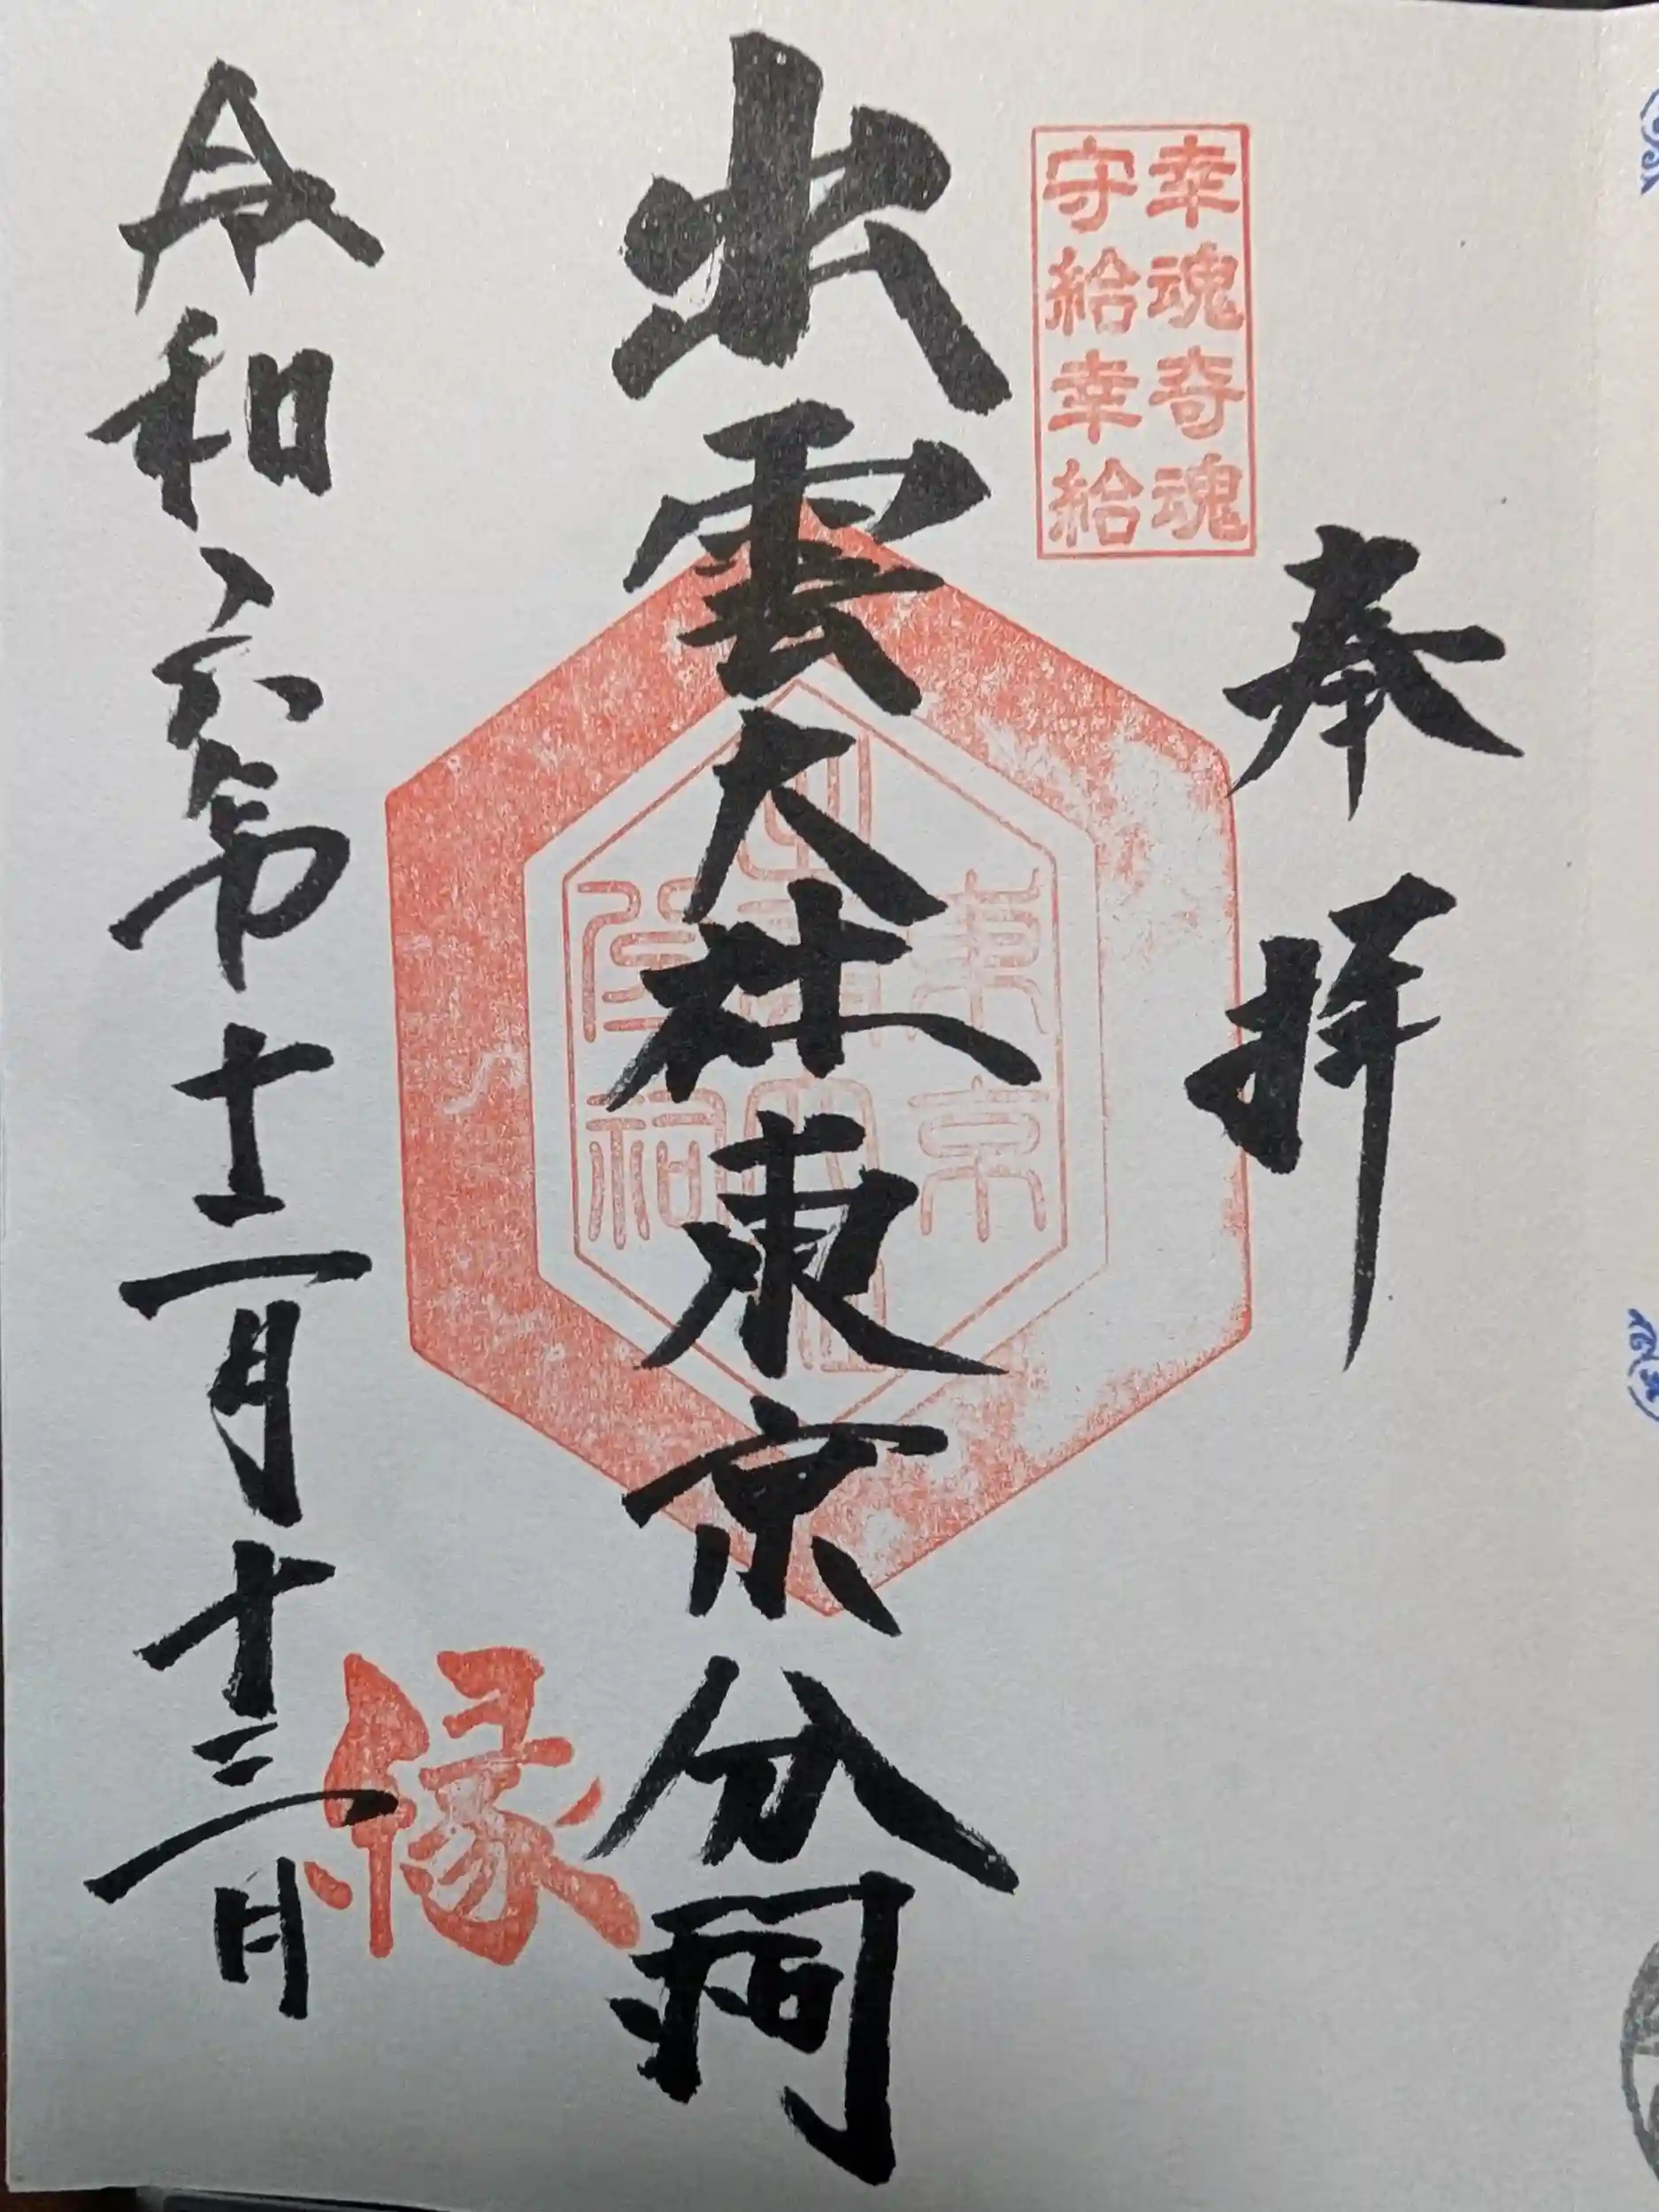 奉拝
幸魂奇魂
守給幸給
出雲大社東京分祠
東京
分祠
縁
令和六年十二月十三日